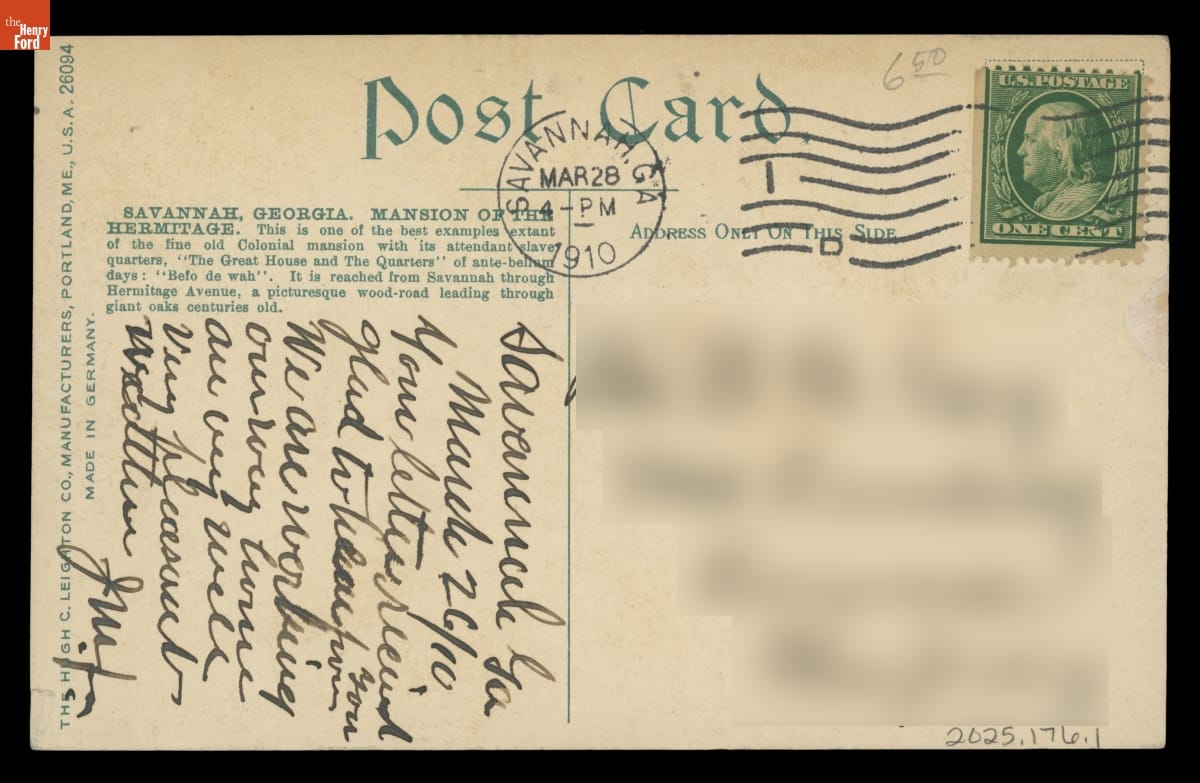 the
Henry
Ford
THE HUGH C. LEIGHTON CO., MANUFACTURERS, PORTLAND, ME., U.S.A. 26094
MADE IN GERMANY.
Post Card
6 50
U.S. POSTAGE
ONE CENT
SAVANNAH, GA
MAR 28
4-PM
1910
I
D
ADDRESS ONLY ON THIS SIDE
SAVANNAH, GEORGIA. MANSION OF THE
HERMITAGE. This is one of the best examples extant
of the fine old Colonial mansion with its attendant slave
quarters, "The Great House and The Quarters" of ante-bellum
days: "Befo de wah". It is reached from Savannah through
Hermitage Avenue, a picturesque wood-road leading through
giant oaks centuries old.
Savannah Ga
March 26/10
Your letter recieved
glad to hear from you
We are working
our way home
are very well
Very pleasant
weather
2025.176.1